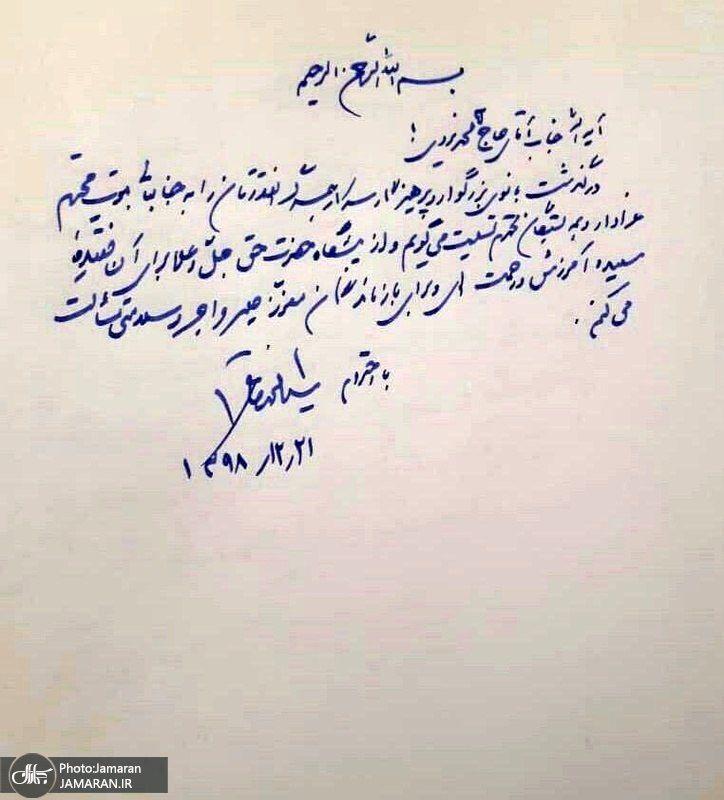 بسم الله الرحمن الرحیم
آیة الله جناب آقای حاج محمد یزدی!
درگذشت بانوی بزرگوار و پرهیزکار همسر گرانقدرتان را به جنابعالی بیت محترم
عزادار و بستگان محترم تسلیت می‌گویم و از پیشگاه حضرت حق جل و علا برای آن فقیدهٔ
سعیده آمرزش و رحمت الهی و برای بازماندگان معزز صبر و اجر و سلامتی مسألت
می کنم.
با احترام
۱۳۹۸/۱۲/۲۱
Photo:Jamaran
JAMARAN.IR
جماران